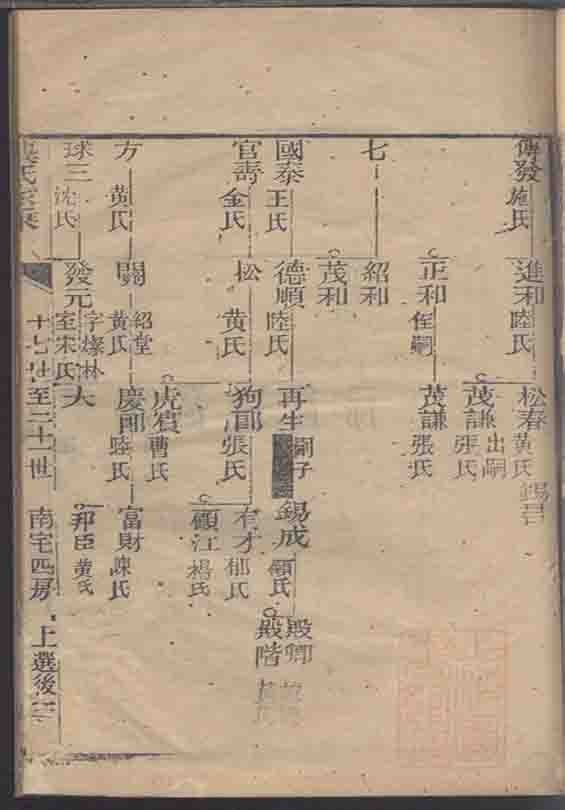 傳發 施氏
進和 陸氏
松春 黄氏
茂謙 出嗣 張氏
正和 侄嗣
茂謙 張氏
七
紹和
茂和
國泰 王氏
德順 陸氏
再生 嗣子
錫成 顧氏
殿卿
殿階
官壽 金氏
松 黄氏
狗郎 張氏
有才 郁氏
顧江 楊氏
方 黄氏
關 紹堂 黄氏
虎賓 曹氏
慶郎 陸氏
富財 陳氏
邦臣 黄氏
球三 沈氏
發元 字燦林 室宋氏
大
至二十一世 南宅四房 上選後